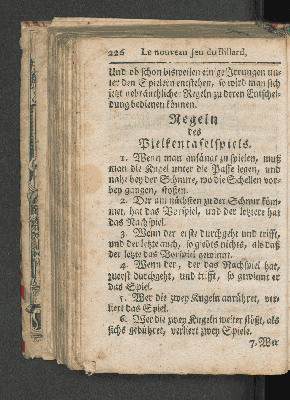 226 Le nouveau Jeu du Billard,
Und ob schon bisweilen einige Irrungen un-
ter den Spielern entstehen, so wird man sich
jetzt gebräuchlicher Regeln zu deren Entschei-
dung bedienen können.
Regeln
des
Pielkentafelspiels.
1. Wenn man anfängt zu spielen, muß
man die Kugel unter die Passe legen, und
nahe bey der Schnure, wo die Schellen vor-
bey gangen, stoßen.
2. Der am nächsten zu der Schnur köm-
met, hat das Vorspiel, und der letztere hat
das Nachspiel.
3. Wenn der erste durchgeht und trifft,
und der letzte auch, so giebts nichts, als daß
der letzte das Vorspiel gewinnt.
4. Wenn der, der das Nachspiel hat,
zuerst durchgeht, und trifft, so gewinnt er
das Spiel.
5. Wer die zwey Kugeln anrühret, ver-
liert das Spiel.
6. Wer die zwey Kugeln weiter stößt, als
sichs gebühret, verliert zwey Spiele.
7. Wer